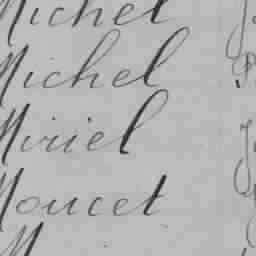 Michel
Michel
Miriel
Moucet